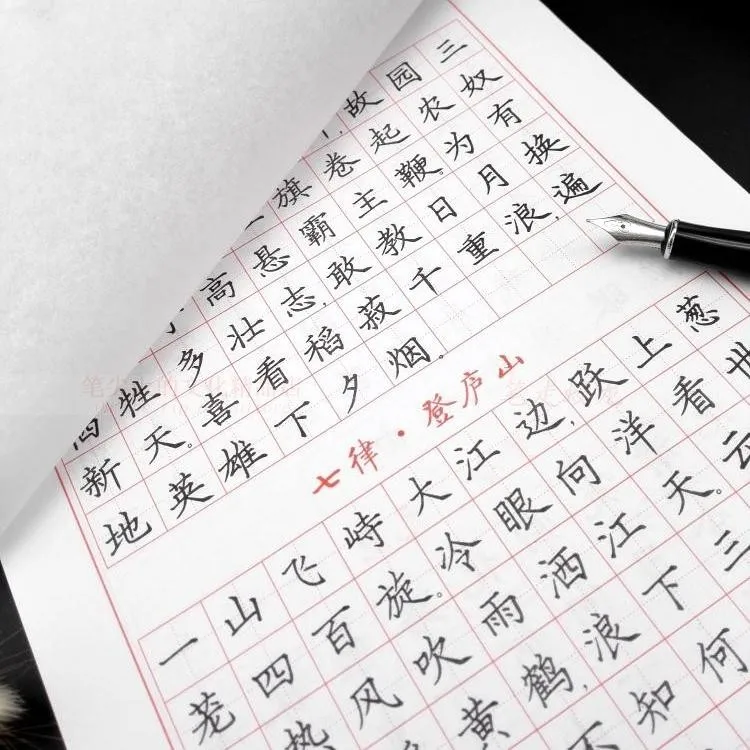 故园三
旗卷起农奴
高悬霸主鞭。为有
牲多壮志,敢教日月换
新天。喜看稻菽千重浪,遍
地英雄下夕烟。
七律·登庐山
一山飞峙大江边,跃上葱
茏四百旋。冷眼向洋看世
热风吹雨洒江天。云
黄鹤,浪下三
不知何